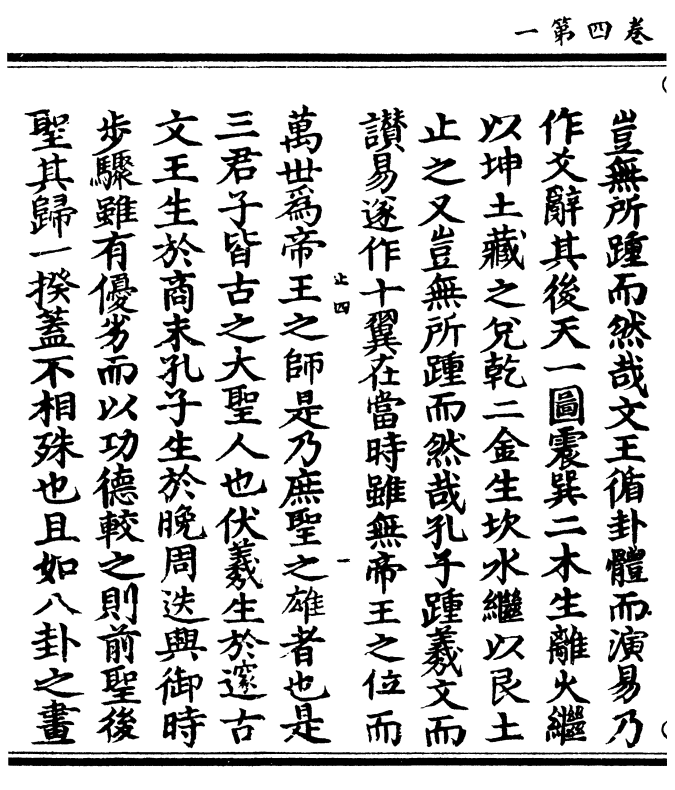 卷四第一
豈無所踵而然哉文王循卦體而演易乃
作爻辭其後天一圖震巽二木生離火繼
以坤土藏之兌乾二金生坎水繼以艮土
止之又豈無所踵而然哉孔子踵羲文而
讃易遂作十翼在當時雖無帝王之位而
止四
一
萬世爲帝王之師是乃庶聖之雄者也是
三君子皆古之大聖人也伏羲生於邃古
文王生於商末孔子生於晩周迭與御時
步驟雖有優劣而以功德較之則前聖後
聖其歸一揆蓋不相殊也且如八卦之畫